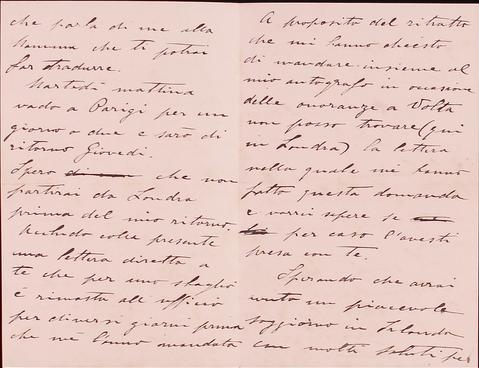 che parla di me alla
Mamma che ti potrai
far tradurre.
Martedì mattina
vado a Parigi per un
giorno o due e sarò di
ritorno Giovedì.
Spero che non
partirai da Londra
prima del mio ritorno.
Acchiudo colla presente
una lettera diretta a
te che per uno sbaglio
è rimasta all' ufficio
per diversi giorni prima
che me l'hanno mandata
A proposito del ritratto
che mi hanno chiesto
di mandare insieme al
mio autografo in occasione
delle onoranze a Volta
non posso trovare (qui
in Londra) la lettera
nella quale mi hanno
fatto questa domanda
e vorrei sapere se
per caso l'avesti
presa con te.
Sperando che avrai
avuto un piacevole
soggiorno in Irlanda
con molti saluti per